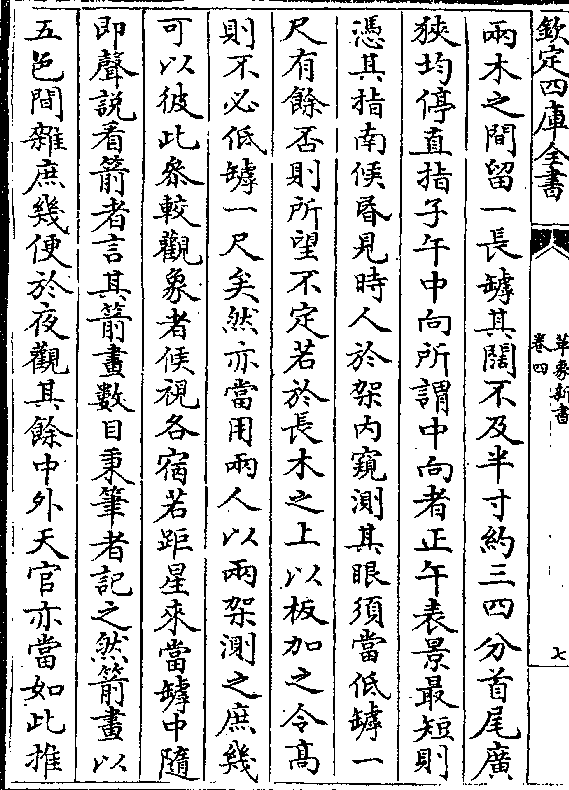 欽定四庫全書
革象新書
卷四
七
兩木之間留一長罅其闊不及半寸約三四分首尾廣
狹均停直指子午中向所謂中向者正午表景最短則
憑其指南候昏見時人於架内窺測其眼須當低罅一
尺有餘否則所望不定若於長木之上以板加之令高
則不必低罅一尺矣然亦當用兩人以兩架測之庶幾
可以彼此叅較觀象者候視各宿若距星來當罅中隨
即聲説看箭者言其箭畫數目秉筆者記之然箭畫以
五色間雜庶幾便於夜觀其餘中外天官亦當如此推